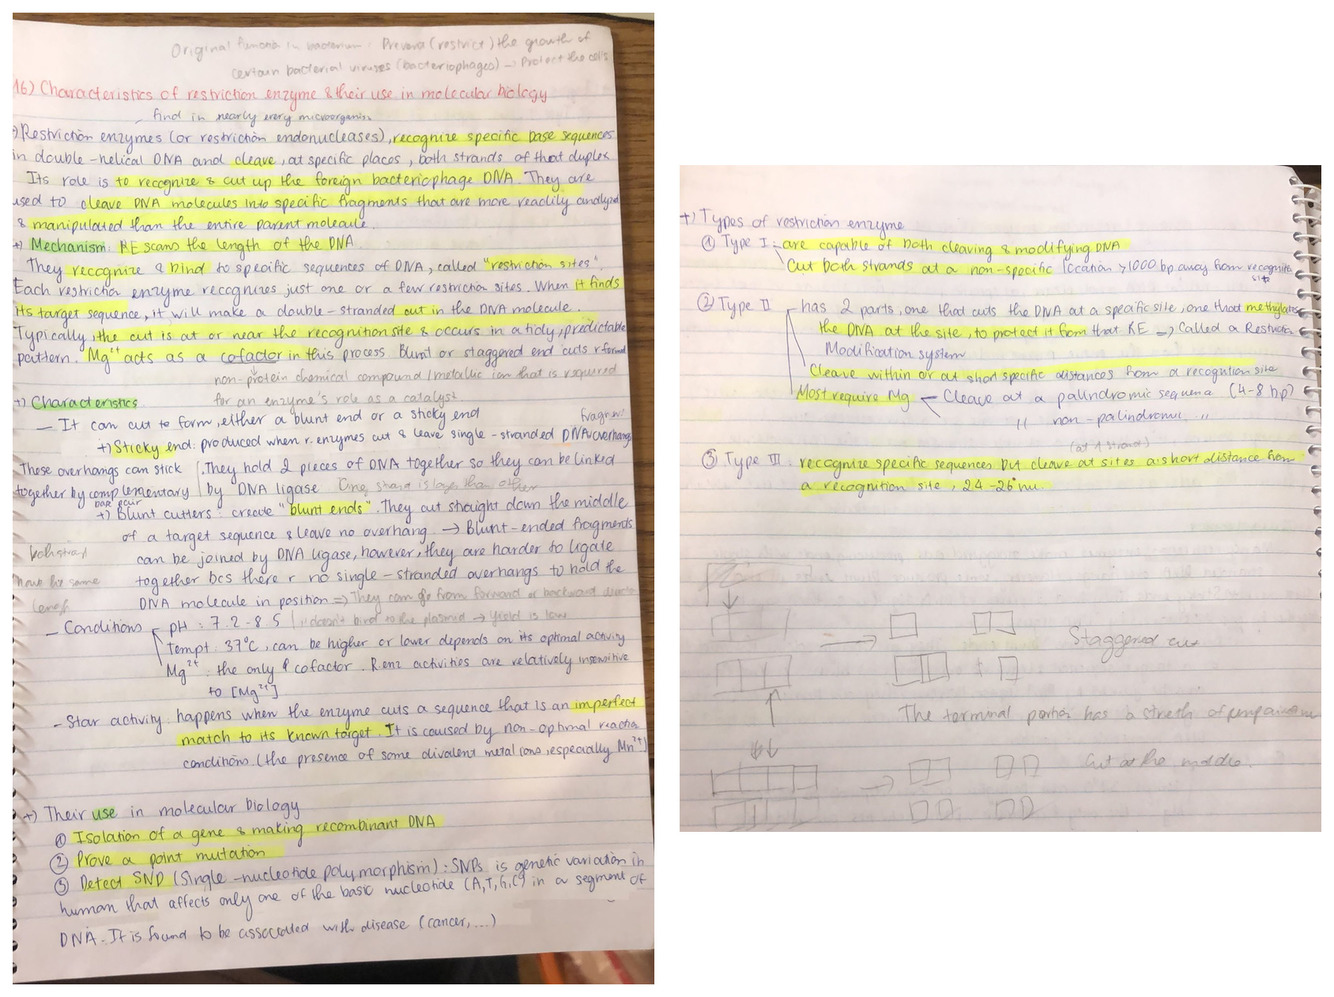 Original in bacterium: Prevent (restrict) the growth of
certain bacterial viruses (bacteriophages) → Protect the cells
16) Characteristics of restriction enzyme & their use in molecular biology
find in nearly every microorganism
+) Restriction enzymes (or restriction endonucleases), recognize specific base sequences
in double-helical DNA and cleave, at specific places, both strands of that duplex
Its role is to recognize & cut up the foreign bacteriophage DNA. They are
used to cleave DNA molecules into specific fragments that are more readily analyzed
& manipulated than the entire parent molecule.
+) Mechanism: RE scans the length of the DNA.
They recognize & bind to specific sequences of DNA, called "restriction sites".
Each restriction enzyme recognizes just one or a few restriction sites. When it finds
its target sequence, it will make a double-stranded cut in the DNA molecule.
Typically, the cut is at or near the recognition site & occurs in a tidy, predictable
pattern. Mg²⁺ acts as a cofactor in this process. Blunt or staggered end cuts r formed
non-protein chemical compound / metallic ion that is required
for an enzyme's role as a catalyst.
+) Characteristics
— It can cut to form, either a blunt end or a sticky end
+) Sticky end: produced when r. enzymes cut & leave single-stranded DNA overhangs
fragment
These overhangs can stick
together by complementary
base pair
They hold 2 pieces of DNA together so they can be linked
by DNA ligase One strand is longer than other
+) Blunt cutters: create "blunt ends". They cut straight down the middle
of a target sequence & leave no overhang. → Blunt-ended fragments
can be joined by DNA ligase, however, they are harder to ligate
together bcs there r no single-stranded overhangs to hold the
DNA molecule in position => They can go from forward or backward
Both strand
have the same
length
doesn't bind to the plasmid → Yield is low
— Conditions pH: 7.2-8.5
Tempt: 37°C, can be higher or lower depends on its optimal activity
Mg²⁺: the only cofactor. R.enz activities are relatively insensitive
to [Mg²⁺]
— Star activity: happens when the enzyme cuts a sequence that is an imperfect
match to its known target. It is caused by non-optimal reaction
conditions. (the presence of some divalent metal ions, especially Mn²⁺)
+) Their use in molecular biology
① Isolation of a gene & making recombinant DNA
② Prove a point mutation
③ Detect SNP (Single-nucleotide polymorphism): SNPs is genetic variation in
human that affects only one of the basic nucleotide (A,T,G,C) in a segment of
DNA. It is found to be associated with disease (cancer,...)
+) Types of restriction enzyme
① Type I are capable of both cleaving & modifying DNA
Cut both strands at a non-specific location >1000 bp away from recognition
site
② Type II has 2 parts, one that cuts the DNA at a specific site, one that methylates
the DNA at the site, to protect it from that RE → Called a Restriction
Modification system
Cleave within or at short specific distances from a recognition site
Most require Mg Cleave at a palindromic sequence (4-8 bp)
" non-palindromic "
(at 1 strand)
③ Type III: recognize specific sequences but cleave at sites a short distance from
a recognition site, 24-26 nu.
Staggered cut
The terminal portion has a stretch of unpaired
Cut at the middle.